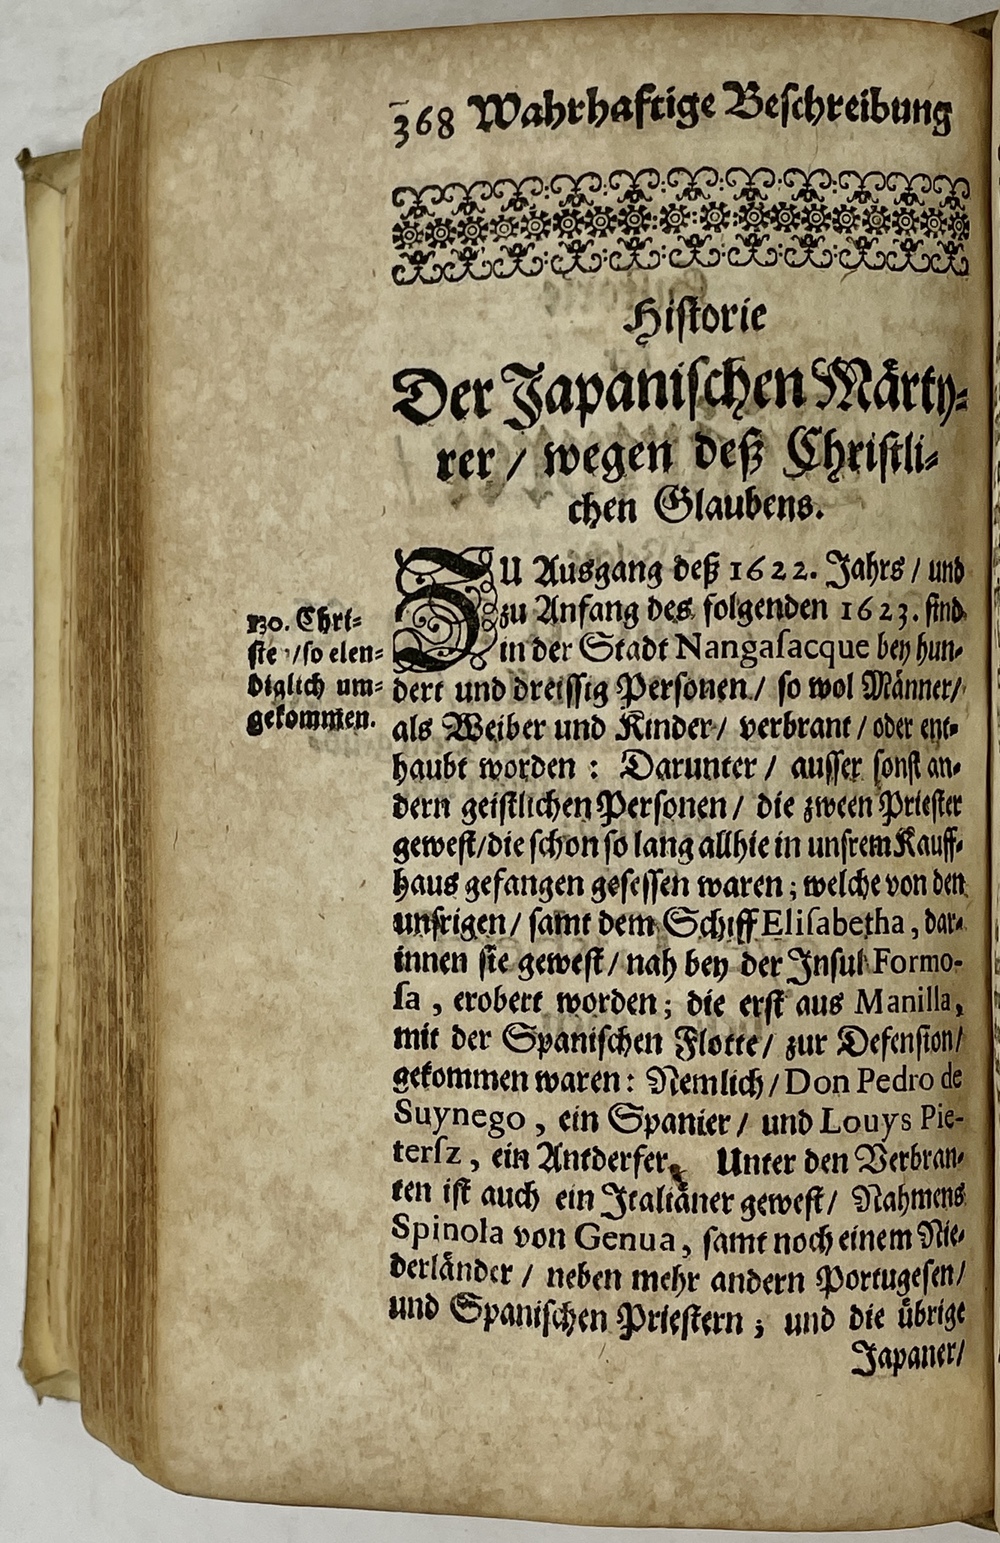 368 Wahrhaftige Beschreibung
Historie
Der Japanischen Märty-
rer / wegen deß Christli-
chen Glaubens.
ZU Ausgang deß 1622. Jahrs / und
zu Anfang des folgenden 1623. sind
in der Stadt Nangasacque bey hun-
dert und dreissig Personen / so wol Männer /
als Weiber und Kinder / verbrant / oder ent-
haubt worden : Darunter / ausser sonst an-
dern geistlichen Personen / die zween Priester
gewest / die schon so lang allhie in unsrem Kauff-
haus gefangen gesessen waren ; welche von den
unsrigen / samt dem Schiff Elisabetha , dar-
innen sie gewest / nah bey der Insul Formo-
sa , erobert worden ; die erst aus Manilla ,
mit der Spanischen Flotte / zur Defension /
gekommen waren : Nemlich / Don Pedro de
Suynego , ein Spanier / und Louys Pie-
tersz , ein Antderfer. Unter den Verbran-
ten ist auch ein Italiäner gewest / Nahmens
Spinola von Genua , samt noch einem Nie-
derländer / neben mehr andern Portugesen /
und Spanischen Priestern ; und die übrige
Japaner /
130. Chri-
ste / so elen-
diglich um-
gekommen.